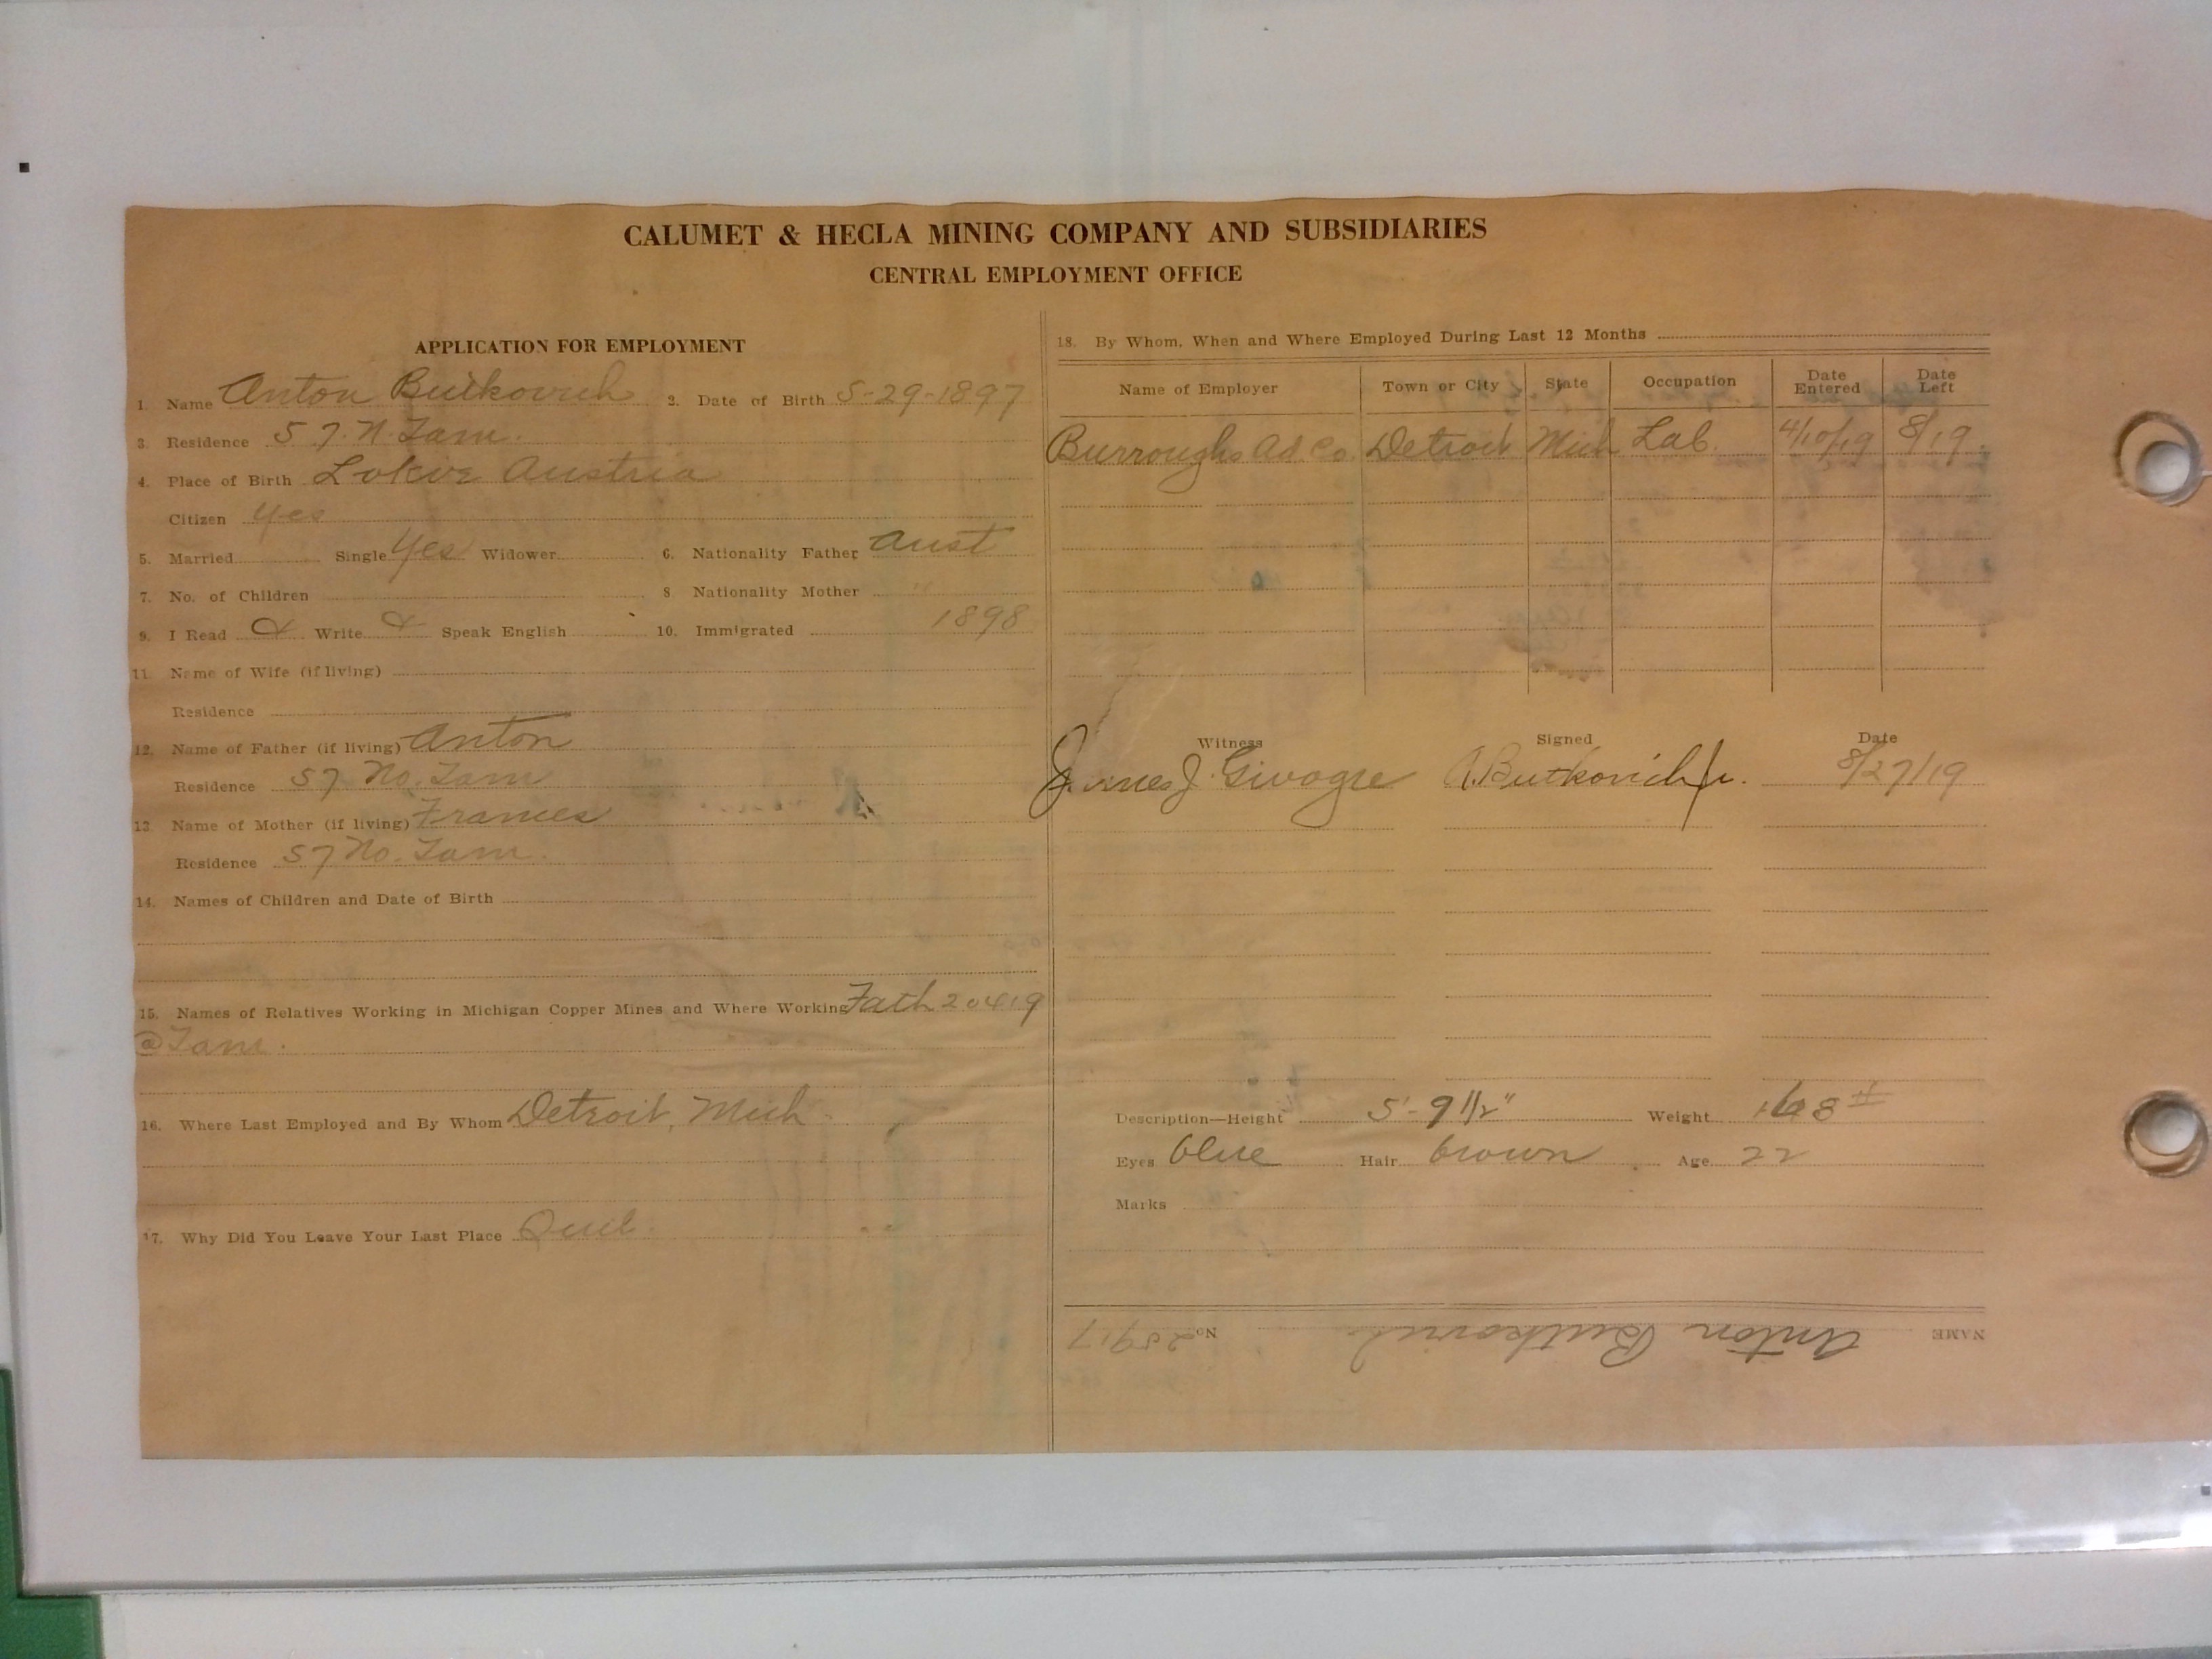 CALUMET & HECLA MINING COMPANY AND SUBSIDIARIES
CENTRAL EMPLOYMENT OFFICE
APPLICATION FOR EMPLOYMENT
1. Name Anton Butkovich 2. Date of Birth 5-29-1897
3. Residence 57. N. Tam.
4. Place of Birth Austria
Citizen yes
5. Married Single Yes Widower 6. Nationality Father Aust
7. No. of Children 8 Nationality Mother "
9. I Read & Write & Speak English 10. Immigrated 1898
11. Name of Wife (if living)
Residence
12. Name of Father (if living) Anton
Residence 57 No. Tam
13. Name of Mother (if living) Frances
Residence 57 No. Tam.
14. Names of Children and Date of Birth
15. Names of Relatives Working in Michigan Copper Mines and Where Working Fath 20419
@ Tam.
16. Where Last Employed and By Whom Detroit, Mich.
17. Why Did You Leave Your Last Place Quit.
18. By Whom, When and Where Employed During Last 12 Months
Name of Employer Town or City State Occupation Date Entered Date Left
Burroughs Ad. Co. Detroit Mich Lab. 4/10/19 8/19.
Witness Signed Date
James J. A. Butkovich Jr. 8/27/19
Description—Height 5'-9 1/2" Weight 168 #
Eyes blue Hair brown Age 22
Marks
NAME Anton Butkovich No. 28917